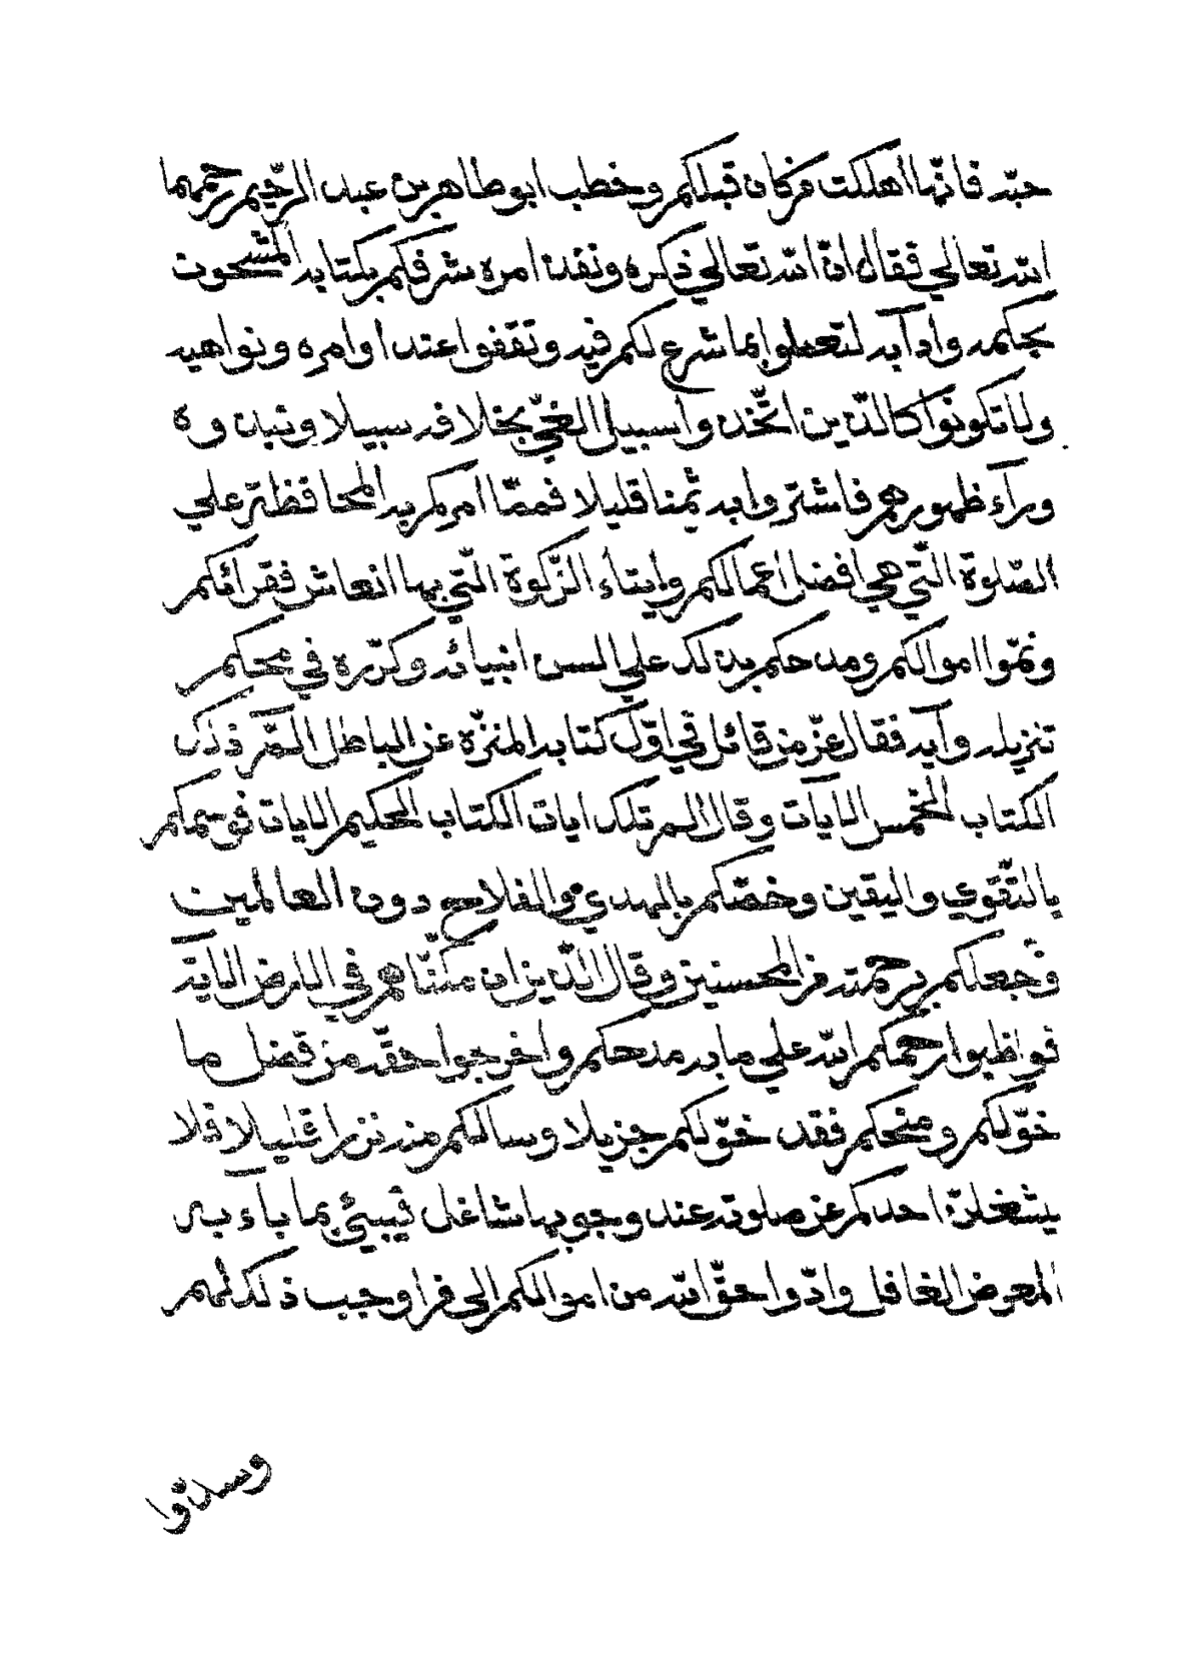 حبّه فانّها اهلكت من كان قبلكم وخطب ابو طاهر بن عبد الرّحيم رحمهما
الله تعالي فقال انّ الله تعالي ذكره ونفذ امره شرفكم بكتابه المشحون
بحكمه وادآبه لتعملوا بما شرع لكم فيه وتقفوا عند اوامره ونواهيه
ولا تكونوا كالّذين اتّخذوا سبيل الغيّ بخلافه سبيلا ونبذوه
ورآء ظهورهم فاشتروا به ثمنا قليلا فممّا امركم به المحافظة علي
الصّلوة الّتي هي افضل اعمالكم وايتاء الزّكوة الّتي بها انعاش فقرائكم
ونموّا اموالكم ومدحكم بذلك علي السن انبيائه وكرّره في محكم
تنزيله وآيه فقال عزّ من قائل في اوّل كتابه المنزّه عن الباطل الٓمّٓ ذلك
الكتاب الخمس الآيات وقال الم تلك ايات الكتاب الحكيم الايات فوسمكم
بالتّقوي واليقين وخصّكم بالهدي والفلاح دون العالمين
وجعلكم برحمته من المحسنين وقال الّذين ان مكّنّاهم في الارض الاية
فواظبوا رحمكم الله علي ما به مدحكم واخرجوا حقّه من فضل ما
خوّلكم ومنحكم فقد خوّلكم جزيلا وسالكم منه نزرا قليلا فلا
يشغلنّ احدكم عن صلوته عند وجوبها شاغل فيبئ بما بآء به
المعرض الغافل وادّوا حقّ الله من اموالكم الي من اوجب ذلك لهم
وسدّوا